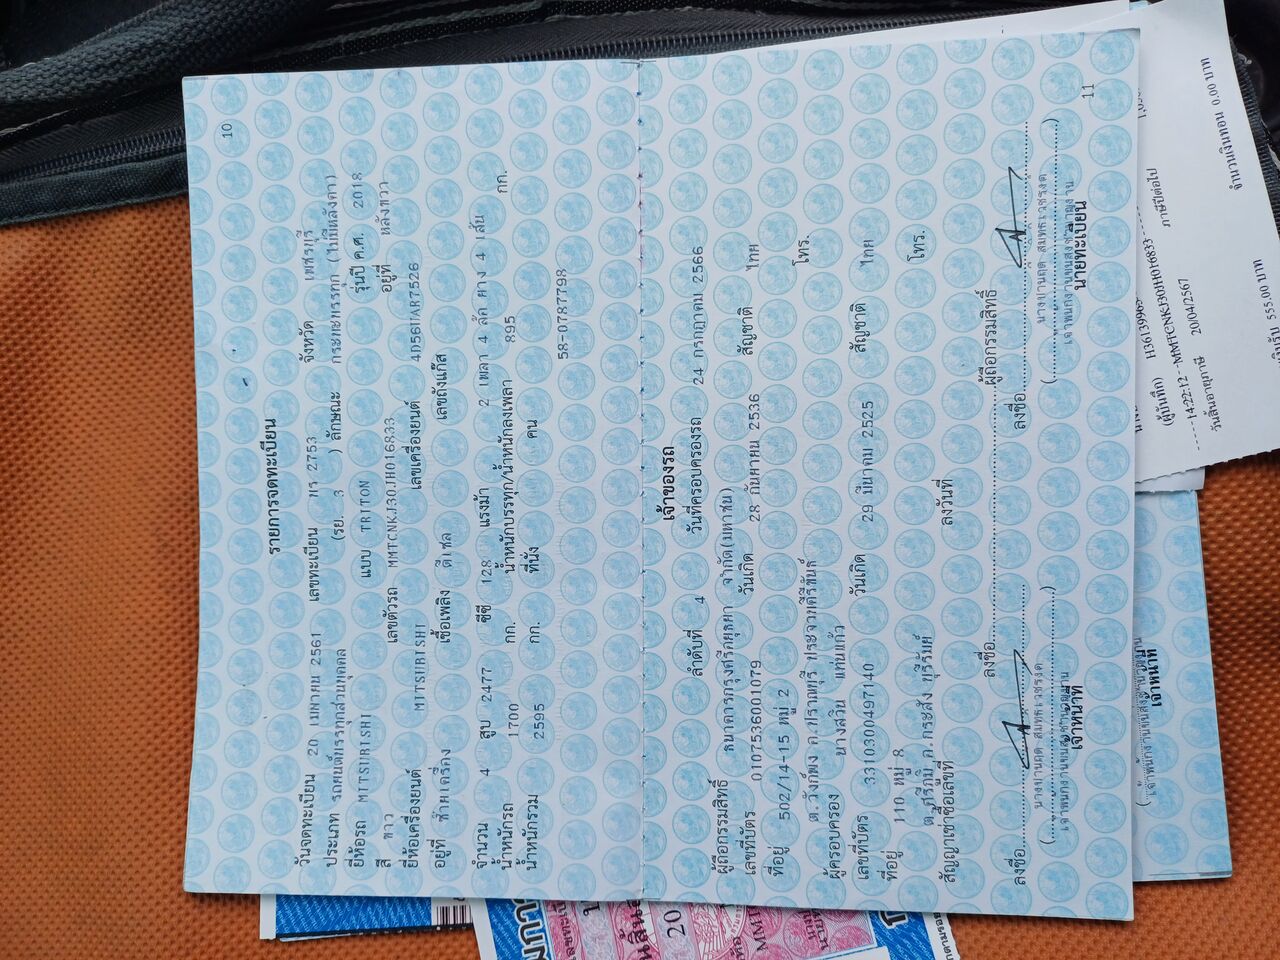 10
รายการจดทะเบียน
วันจดทะเบียน 20 เมษาคน 2561 เลขทะเบียน พร 2753 จังหวัด เพชรบุรี
ประเภท รถยนต์บรรทุกส่วนบุคคล (รย. 3 ) ลักษณะ กระบะบรรทุก (ไม่มีหลังคา)
ยี่ห้อรถ MITSUBISHI แบบ TRITON รุ่นปี ค.ศ. 2018
สี ขาว เลขตัวรถ MMTCNKJ30JH016833 อยู่ที่ หลังขวา
ยี่ห้อเครื่องยนต์ MITSUBISHI เลขเครื่องยนต์ 4D56UAR7526
อยู่ที่ ซ้ายเครื่อง เชื้อเพลิง ดีเซล เลขถังแก๊ส
จำนวน 4 สูบ 2477 ซีซี 128 แรงม้า 2 เพลา 4 ล้อ ยาง 4 เส้น
น้ำหนักรถ 1700 กก. น้ำหนักบรรทุก/น้ำหนักลงเพลา 895 กก.
น้ำหนักรวม 2595 กก. ที่นั่ง คน
58-0787798
เจ้าของรถ
ลำดับที่ 4 วันที่ครอบครองรถ 24 กรกฎาคม 2566
ผู้ถือกรรมสิทธิ์ ธนาคารกรุงศรีอยุธยา จำกัด(มหาชน)
เลขที่บัตร 0107536001079 วันเกิด 28 กันยายน 2536 สัญชาติ ไทย
ที่อยู่ 502/14-15 หมู่ 2
ต.วังก์พง อ.ปราณบุรี ประจวบคีรีขันธ์ โทร.
ผู้ครอบครอง นางสวิน แท่นแก้ว
เลขที่บัตร 3310300497140 วันเกิด 29 มีนาคม 2525 สัญชาติ ไทย
ที่อยู่ 110 หมู่ 8
ต.ศรีภูมิ อ.กระสัง บุรีรัมย์ โทร.
สัญญาเช่าซื้อเลขที่ ลงวันที่
ลงชื่อ ผู้ถือกรรมสิทธิ์
ลงชื่อ ลงชื่อ
เจ้าพนักงานขนส่งชำนาญงาน เจ้าพนักงานขนส่งชำนาญงาน
เจ้าหน้าที่ นายทะเบียน
11
(ผู้บันทึก)
-14:22:12--MMTCNKJ30JH016833
ภาษีปีต่อไป
วันสิ้นอายุภาษี 20/04/2567
555.00 บาท
จำนวนเงินทอน 0.00 บาท
เจ้าหน้าที่